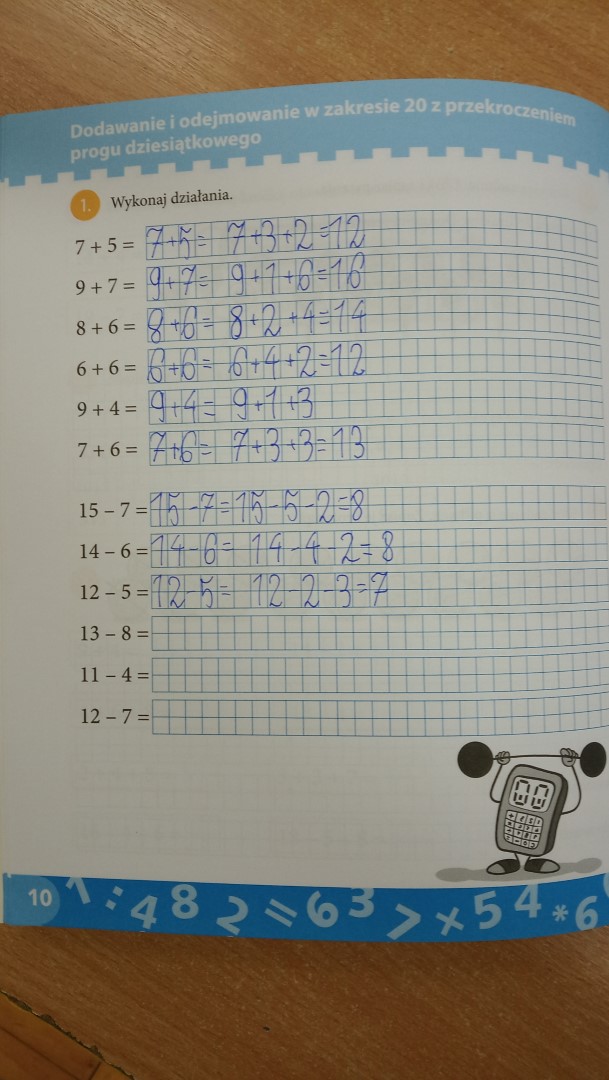 Dodawanie i odejmowanie w zakresie 20 z przekroczeniem
progu dziesiątkowego
1. Wykonaj działania.
7 + 5 = 7+5= 7+3+2=12
9 + 7 = 9+7= 9+1+6=16
8 + 6 = 8+6= 8+2+4=14
6 + 6 = 6+6= 6+4+2=12
9 + 4 = 9+4= 9+1+3
7 + 6 = 7+6= 7+3+3=13
15 – 7 = 15-7=15-5-2=8
14 – 6 = 14-6= 14-4-2=8
12 – 5 = 12-5= 12-2-3=7
13 – 8 =
11 – 4 =
12 – 7 =
10 1 : 4 8 2 = 6 3 7 × 5 4 * 6